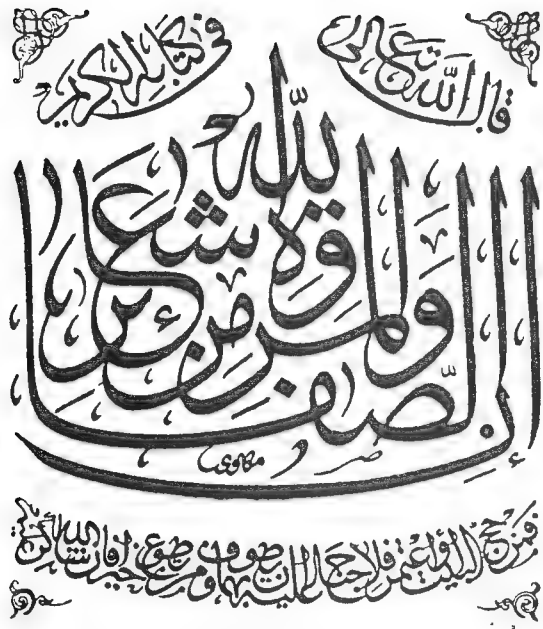 قال الله تعالى
في كتابه الكريم
إن الصفا والمروة من شعائر الله
مكاوي
فمن حج البيت أو اعتمر فلا جناح عليه أن يطوف بهما ومن تطوع خيرا فإن الله شاكر عليم